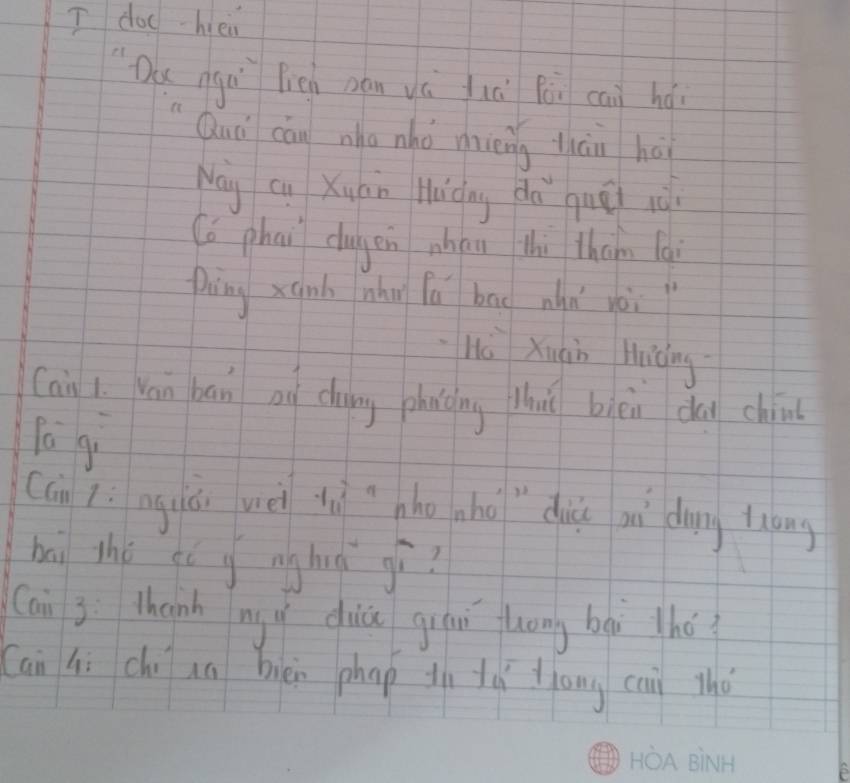 I đọc - hiểu
"Đọc ngữ liệu sau và trả lời câu hỏi
"Quả cau nho nhỏ miếng trầu hôi
Này của Xuân Hương đã quệt rồi
Có phải duyên nhau thì thắm lại
Đừng xanh như lá bạc như vôi"
- Hồ Xuân Hương -
Câu 1. Văn bản sử dụng phương thức biểu đạt chính
là gì
Câu 1: người viết từ "nho nhỏ" được sử dụng trong
bài thơ có ý nghĩa gì?
Câu 3: thành ngữ được trong bài thơ?
Câu 4: chỉ ra biện pháp tu từ trong câu thơ
HÒA BÌNH